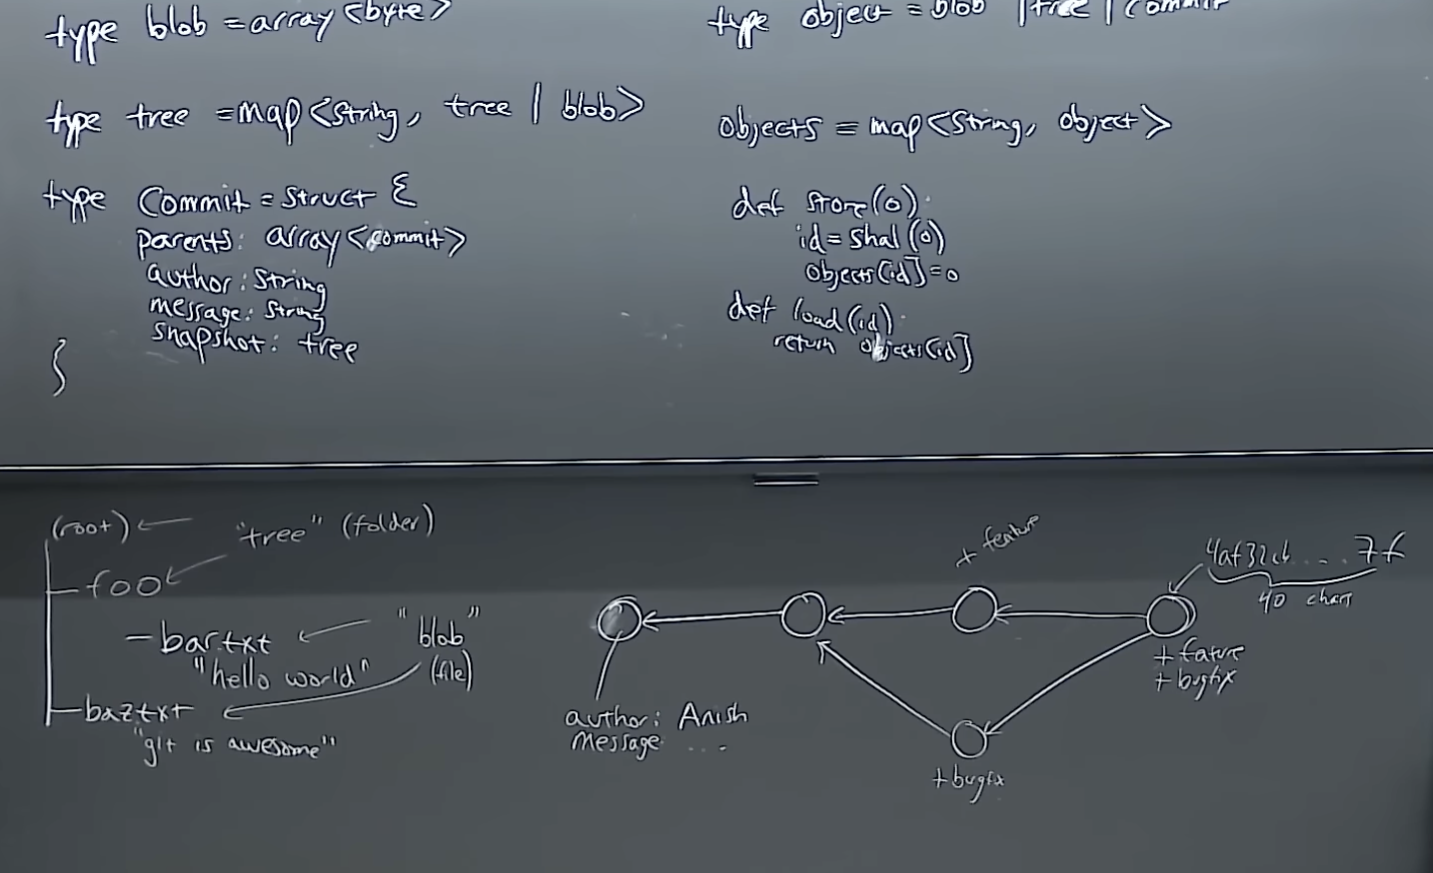 type blob = array<byte>
type tree = map<string, tree | blob>
type commit = struct {
parents: array<commit>
author: string
message: string
snapshot: tree
}
type object = blob | tree | commit
objects = map<string, object>
def store(o):
id = sha1(o)
objects[id] = o
def load(id):
return objects[id]
(root)
"tree" (folder)
foo
- bar.txt
"hello world"
"blob"
(file)
baz.txt
"git is awesome"
author: Anish
message ....
+ feature
+ bugfix
4af32cb.... 7f
40 chars
+ fature
+ bugfix